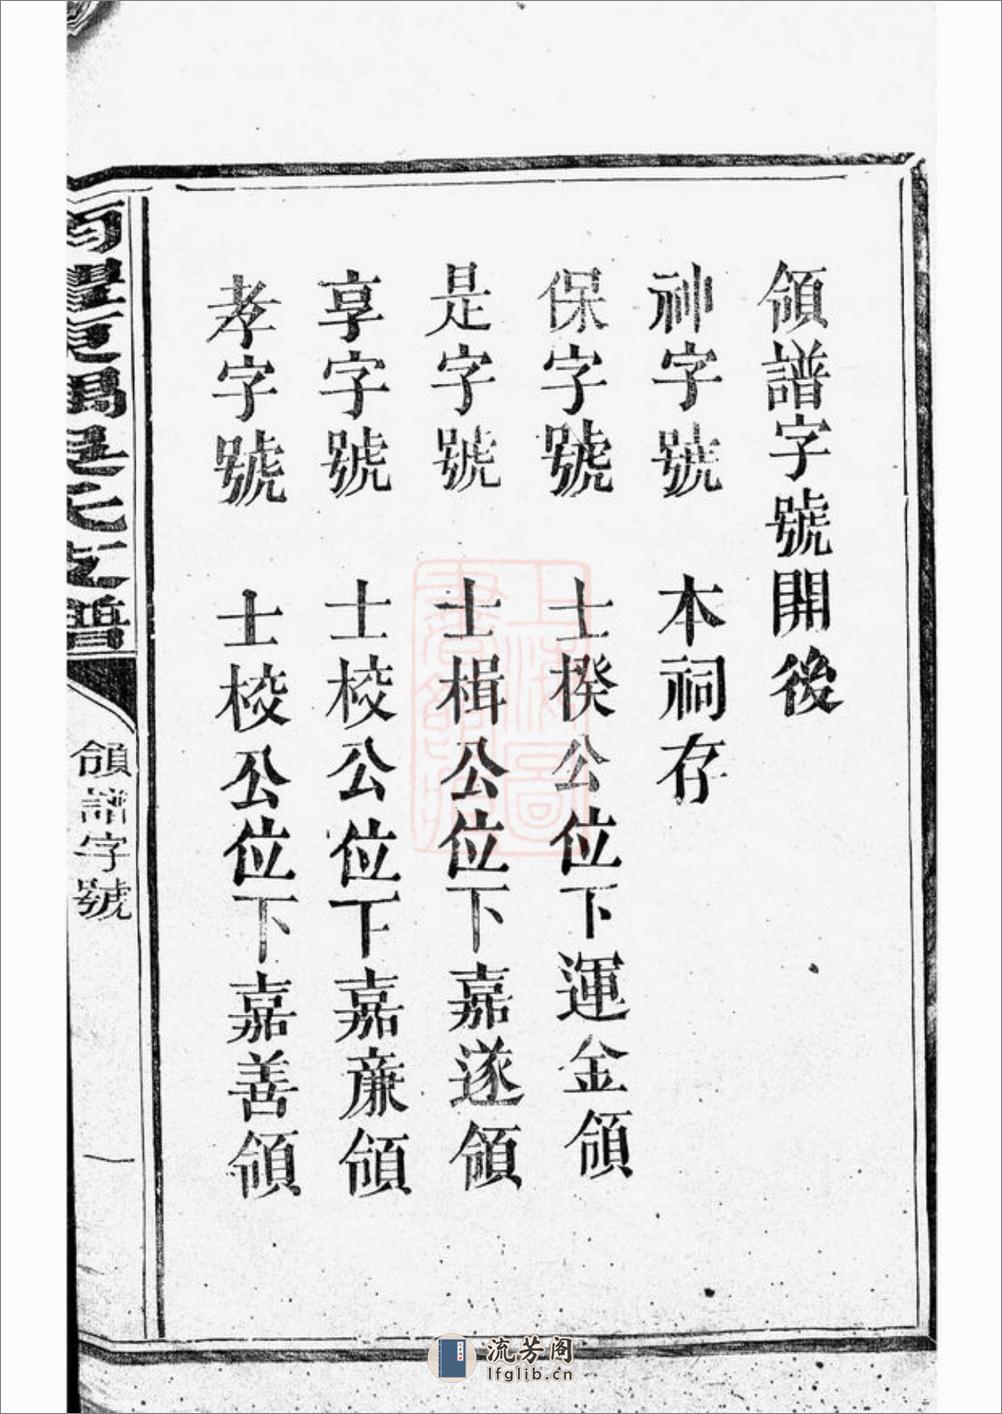 領譜字號開後
神字號 本祠存
保字號 士楑公位下運金領
是字號 士楫公位下嘉遂領
享字號 士校公位下嘉廉領
孝字號 士校公位下嘉善領
氏支譜
領譜字號
一
上海圖
流芳阁
lfglib.cn